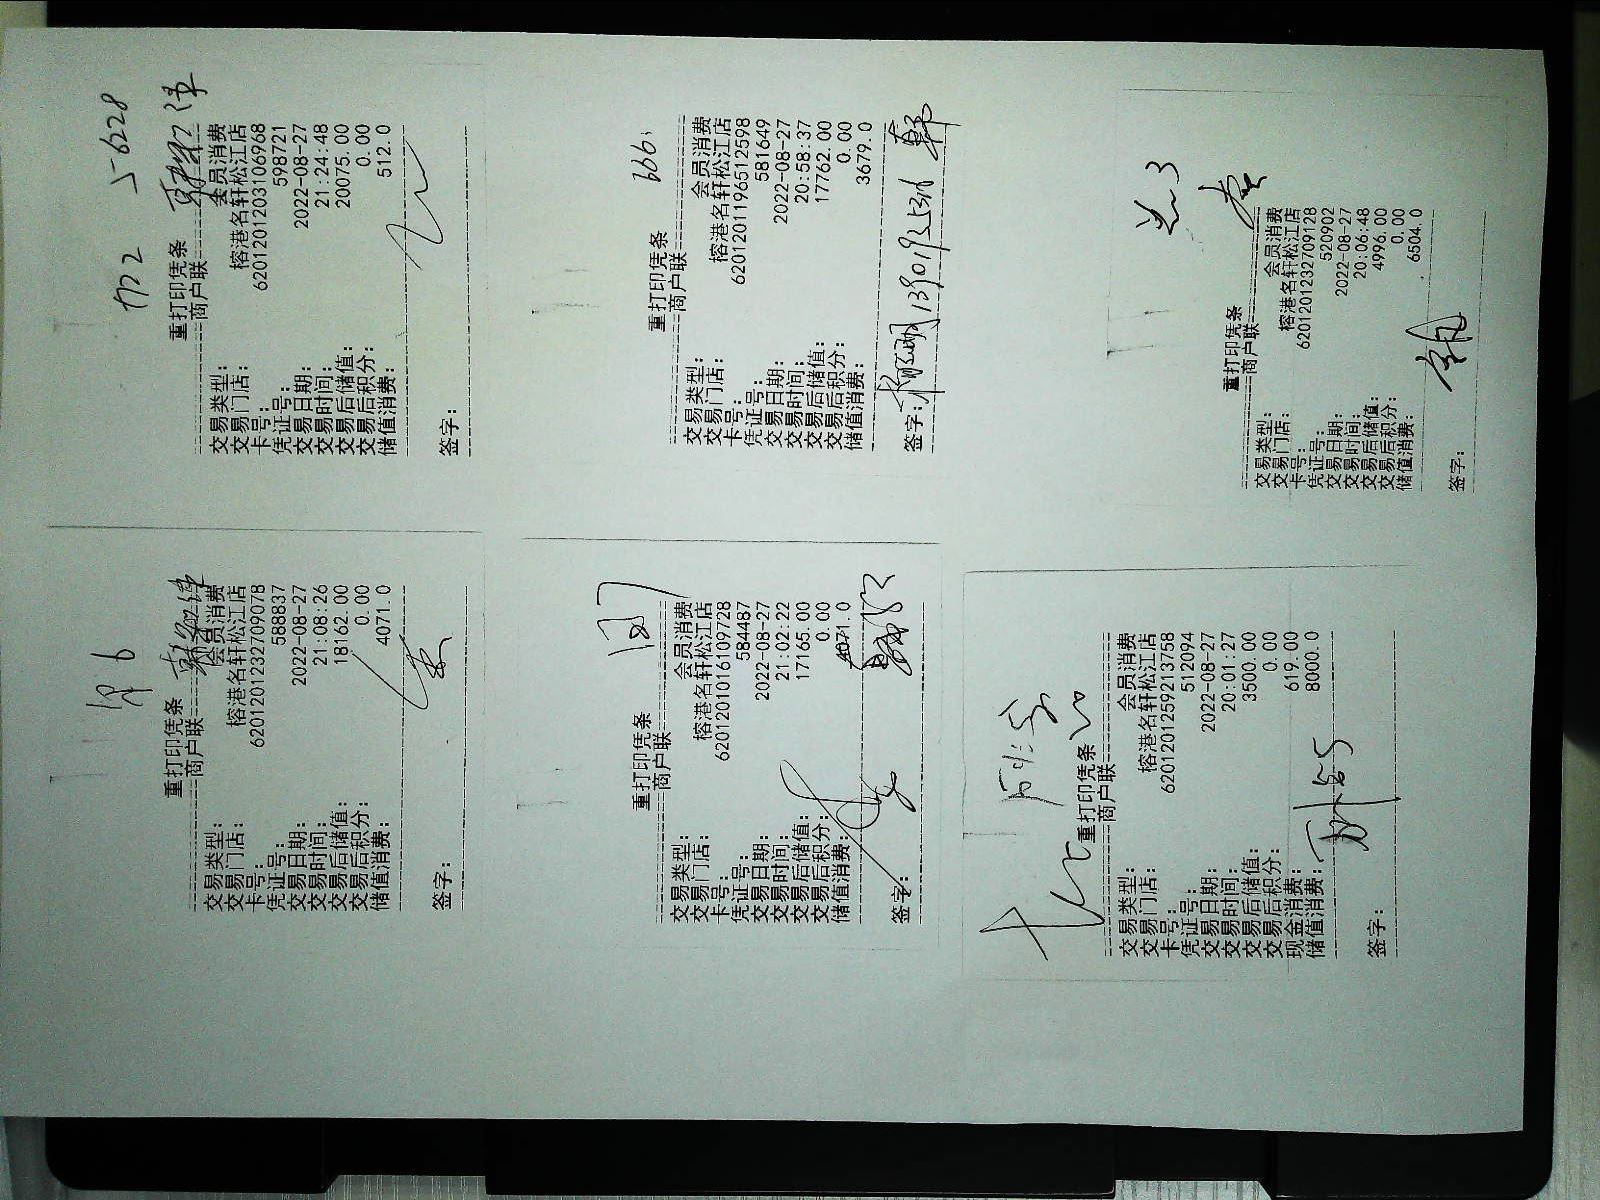 重打印凭条
商户联
交易类型: 会员消费
交易门店: 榕港名轩松江店
卡号: 6201201232709078
凭证号: 588837
交易日期: 2022-08-27
交易时间: 21:08:26
交易后储值: 18162.00
交易后积分: 0.00
储值消费: 4071.0
签字:
5-6228
重打印凭条
商户联
交易类型: 会员消费
交易门店: 榕港名轩松江店
卡号: 6201201203106968
凭证号: 598721
交易日期: 2022-08-27
交易时间: 21:24:48
交易后储值: 20075.00
交易后积分: 0.00
储值消费: 512.0
签字:
重打印凭条
商户联
交易类型: 会员消费
交易门店: 榕港名轩松江店
卡号: 6201201016109728
凭证号: 584487
交易日期: 2022-08-27
交易时间: 21:02:22
交易后储值: 17165.00
交易后积分: 0.00
储值消费: 4071.0
签字:
666
重打印凭条
商户联
交易类型: 会员消费
交易门店: 榕港名轩松江店
卡号: 6201201196512598
凭证号: 581649
交易日期: 2022-08-27
交易时间: 20:58:37
交易后储值: 17762.00
交易后积分: 0.00
储值消费: 3679.0
签字:
重打印凭条
商户联
交易类型: 会员消费
交易门店: 榕港名轩松江店
卡号: 6201201259213758
凭证号: 512094
交易日期: 2022-08-27
交易时间: 20:01:27
交易后储值: 3500.00
交易后积分: 0.00
现金消费: 619.00
储值消费: 8000.0
签字:
重打印凭条
商户联
交易类型: 会员消费
交易门店: 榕港名轩松江店
卡号: 6201201232709128
凭证号: 520902
交易日期: 2022-08-27
交易时间: 20:06:48
交易后储值: 4996.00
交易后积分: 0.00
储值消费: 6504.0
签字: